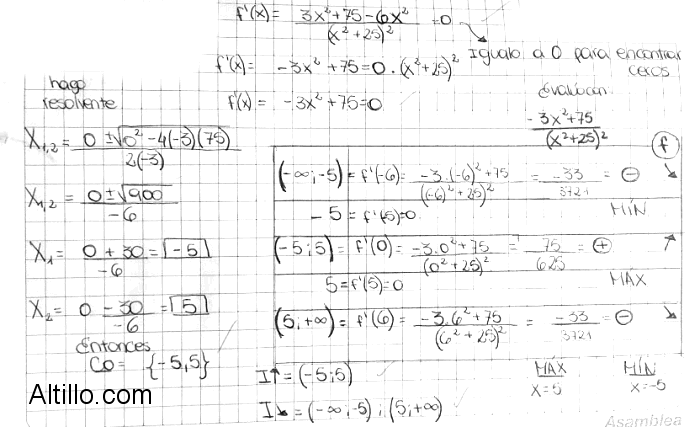 f'(x) = (3x² + 75 - 6x²) / (x² + 25)² = 0
Igualo a 0 para encontrar ceros
f'(x) = -3x² + 75 = 0 . (x² + 25)²
f'(x) = -3x² + 75 = 0
hago
resolvente
X₁,₂ = (0 ± √(0² - 4(-3)(75))) / 2(-3)
X₁,₂ = (0 ± √900) / -6
X₁ = (0 + 30) / -6 = -5
X₂ = (0 - 30) / -6 = 5
Entonces
C0 = {-5,5}
Evaluo con
(-3x² + 75) / (x² + 25)²
f
(-∞;-5) = f'(-6) = (-3.(-6)² + 75) / ((-6)² + 25)² = -33 / 3721 = ⊖ ↘
-5 = f'(5) = 0. MÍN
(-5;5) = f'(0) = (-3.0² + 75) / (0² + 25)² = 75 / 625 = ⊕ ↗
5 = f'(5) = 0 MÁX
(5;+∞) = f'(6) = (-3.6² + 75) / (6² + 25)² = -33 / 3721 = ⊖ ↘
I↑ = (-5;5)
I↘ = (-∞;-5) ; (5;+∞)
MÁX
X=5
MÍN
X=-5
Altillo.com
Asamblea